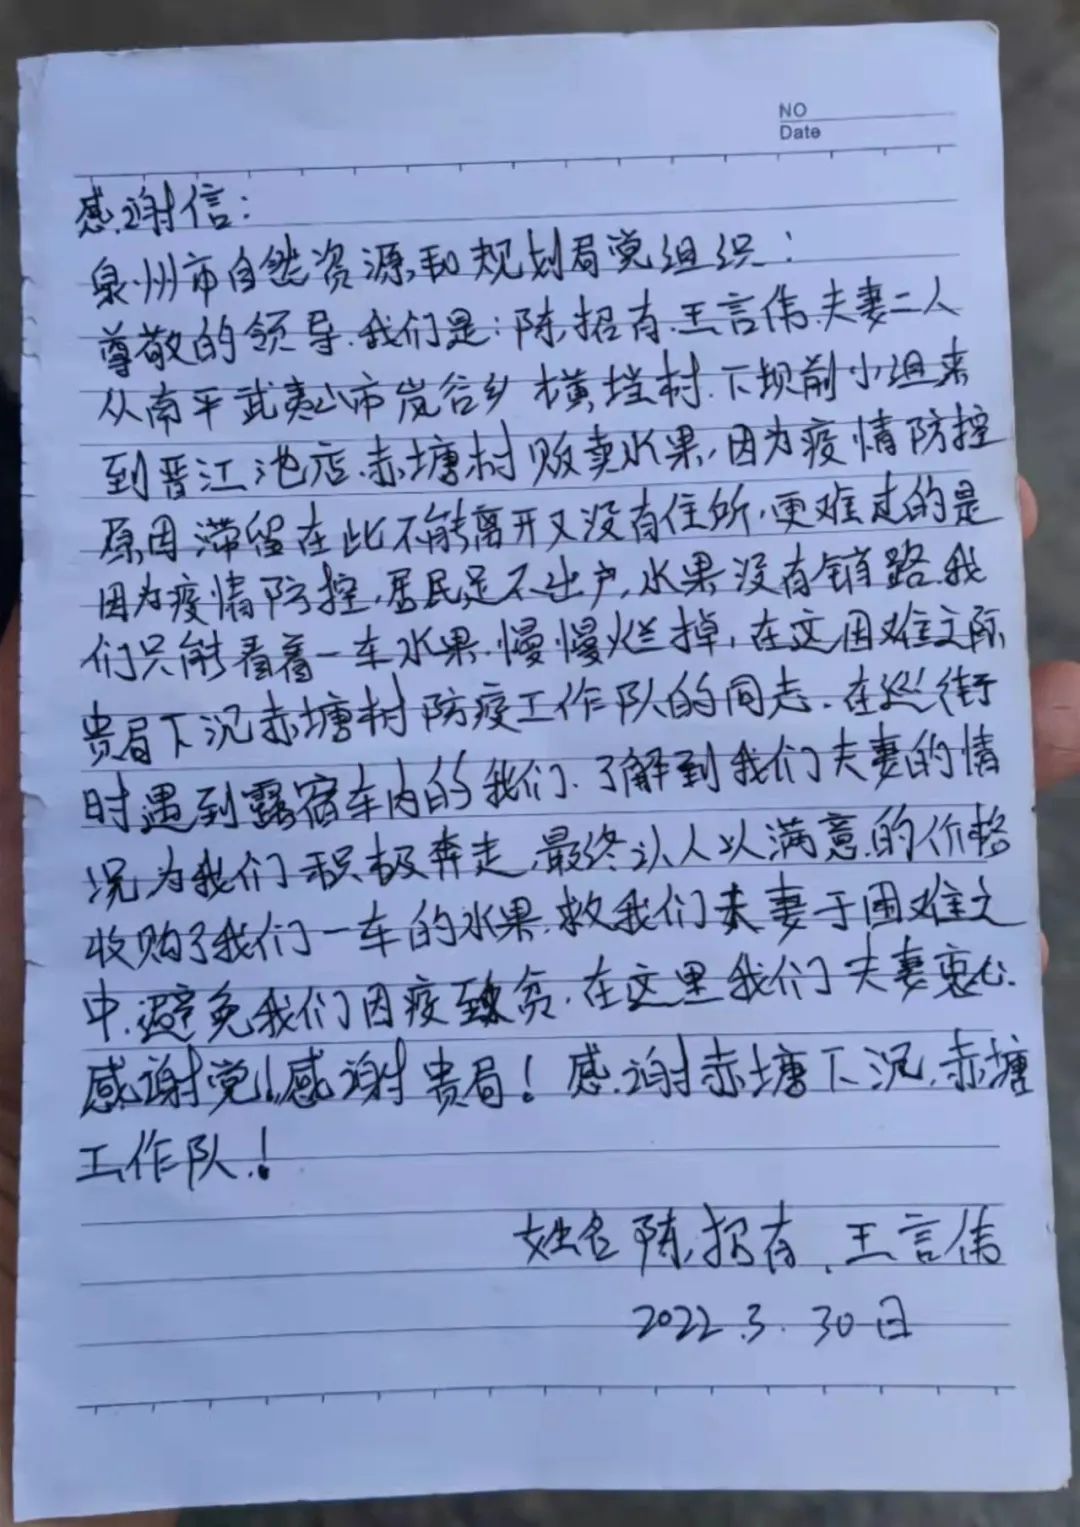 NO
Date
感谢信:
泉州市自然资源和规划局党组织:
尊敬的领导.我们是:陈招有.王言伟.夫妻二人
从南平武夷山市岚谷乡横垱村.下坝前小组来
到晋江池店.赤塘村贩卖水果,因为疫情防控
原因滞留在此不能离开又没有住所,更难过的是
因为疫情防控,居民足不出户,水果没有销路.我
们只能看着一车水果.慢慢烂掉,在这困难之际
贵局下沉赤塘村防疫工作队的同志.在巡街
时遇到露宿车内的我们.了解到我们夫妻的情
况为我们积极奔走,最终认人以满意的价格
收购了我们一车的水果.救我们夫妻于困难之
中.避免我们因疫致贫.在这里我们夫妻衷心.
感谢党!感谢贵局!感谢赤塘下沉.赤塘
工作队.!
姓名陈招有.王言伟
2022.3.30日